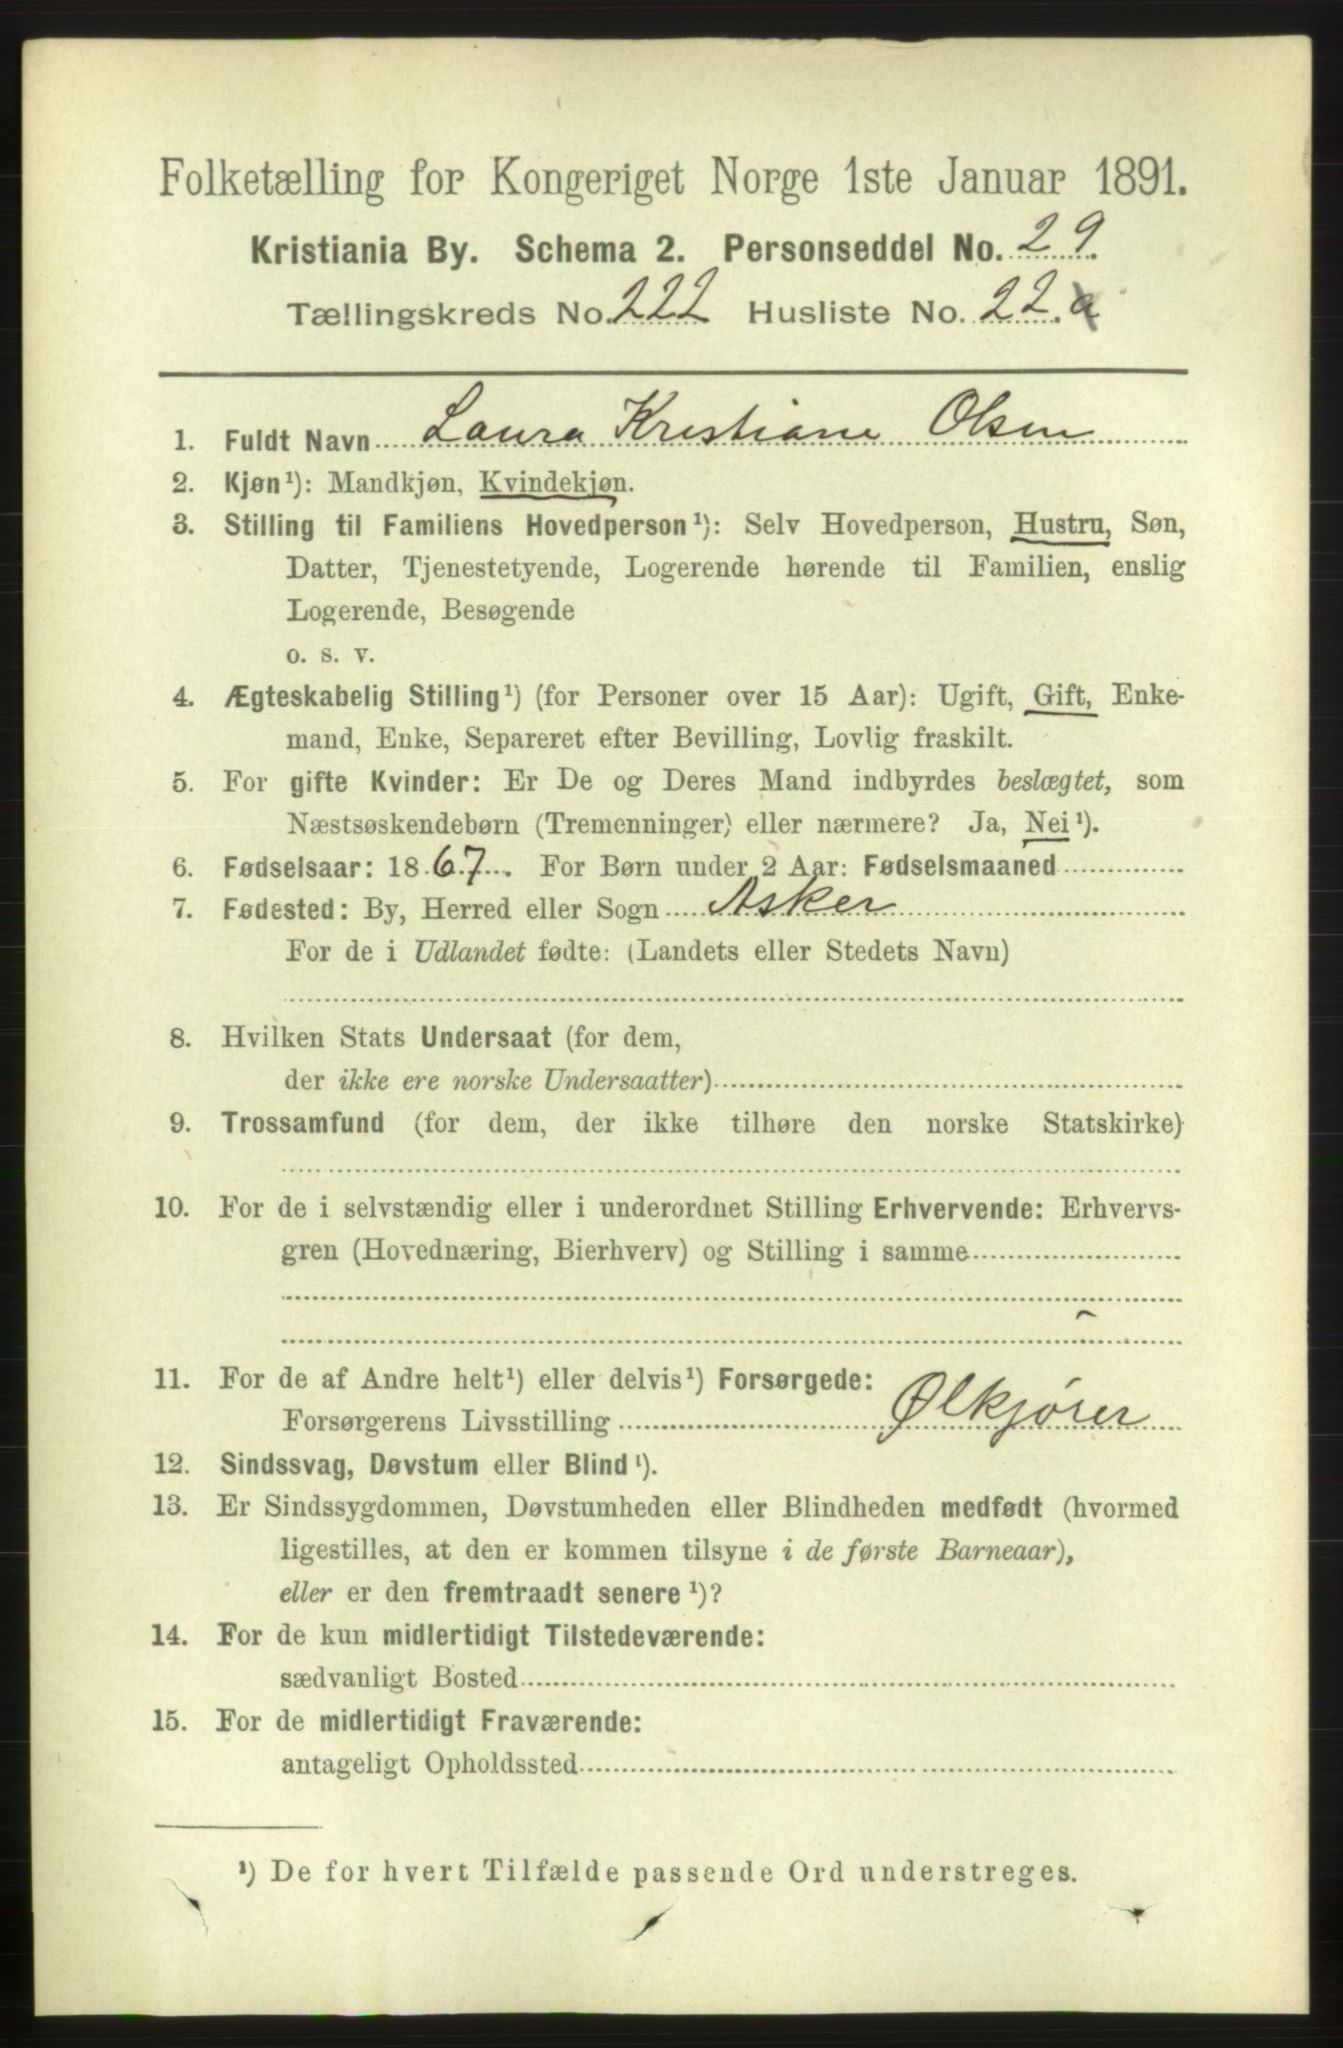 Folketælling for Kongeriget Norge 1ste Januar 1891.
Kristiania By. Schema 2. Personseddel No. 29.
Tællingskreds No. 222 Husliste No. 22.a
1. Fuldt Navn Laura Kristiane Olsen
2. Kjøn¹): Mandkjøn, Kvindekjøn.
3. Stilling til Familiens Hovedperson¹): Selv Hovedperson, Hustru, Søn,
Datter, Tjenestetyende, Logerende hørende til Familien, enslig
Logerende, Besøgende
o. s. v.
4. Ægteskabelig Stilling¹) (for Personer over 15 Aar): Ugift, Gift, Enke-
mand, Enke, Separeret efter Bevilling, Lovlig fraskilt.
5. For gifte Kvinder: Er De og Deres Mand indbyrdes beslægtet, som
Næstsøskendebørn (Tremenninger) eller nærmere? Ja, Nei¹).
6. Fødselsaar: 1867. For Børn under 2 Aar: Fødselsmaaned
7. Fødested: By, Herred eller Sogn Asker
For de i Udlandet fødte: (Landets eller Stedets Navn)
8. Hvilken Stats Undersaat (for dem,
der ikke ere norske Undersaatter)
9. Trossamfund (for dem, der ikke tilhøre den norske Statskirke)
10. For de i selvstændig eller i underordnet Stilling Erhvervende: Erhvervs-
gren (Hovednæring, Bierhverv) og Stilling i samme
11. For de af Andre helt¹) eller delvis¹) Forsørgede:
Forsørgerens Livsstilling Ølkjører
12. Sindssvag, Døvstum eller Blind¹).
13. Er Sindssygdommen, Døvstumheden eller Blindheden medfødt (hvormed
ligestilles, at den er kommen tilsyne i de første Barneaar),
eller er den fremtraadt senere¹)?
14. For de kun midlertidigt Tilstedeværende:
sædvanligt Bosted
15. For de midlertidigt Fraværende:
antageligt Opholdssted
¹) De for hvert Tilfælde passende Ord understreges.